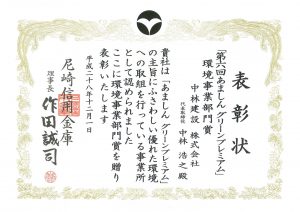 表彰状
「第六回あましん グリーンプレミアム」
環境事業部門賞
中林建設 株式会社
代表取締役
中林 浩之 殿
貴社は「あましん グリーンプレミアム」
の主旨にふさわしい優れた環境
への取組を行っている事業所
として認められました
ここに環境事業部門賞を贈り
表彰いたします
平成二十八年十二月一日
尼崎信用金庫
理事長 作田誠司